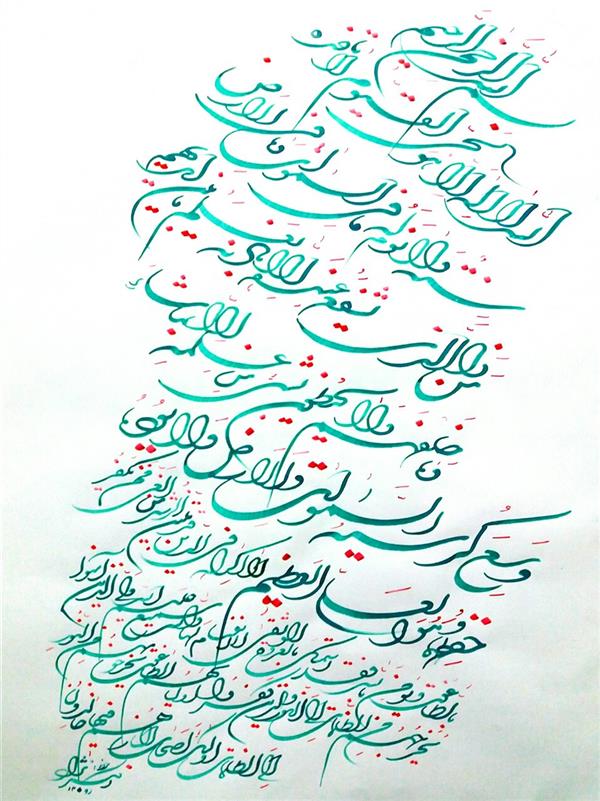 بسم الله الرحمن الرحیم
الله لا اله الا هو الحی القیوم لا تاخذه
سنة ولا نوم له ما فی السموات وما فی الارض
من ذا الذی یشفع عنده الا باذنه یعلم ما بین ایدیهم
وما خلفهم ولا یحیطون بشئ من علمه الا بما شاء
وسع کرسیه السموات والارض ولا یؤده
حفظهما وهو العلی العظیم لا اکراه فی الدین قد تبین الرشد من الغی فمن یکفر
بالطاغوت ویؤمن بالله فقد استمسک بالعروة الوثقی لا انفصام لها والله سمیع علیم الله ولی الذین آمنوا
یخرجهم من الظلمات الی النور والذین کفروا اولیاؤهم الطاغوت یخرجونهم من النور
الی الظلمات اولئک اصحاب النار هم فیها خالدون